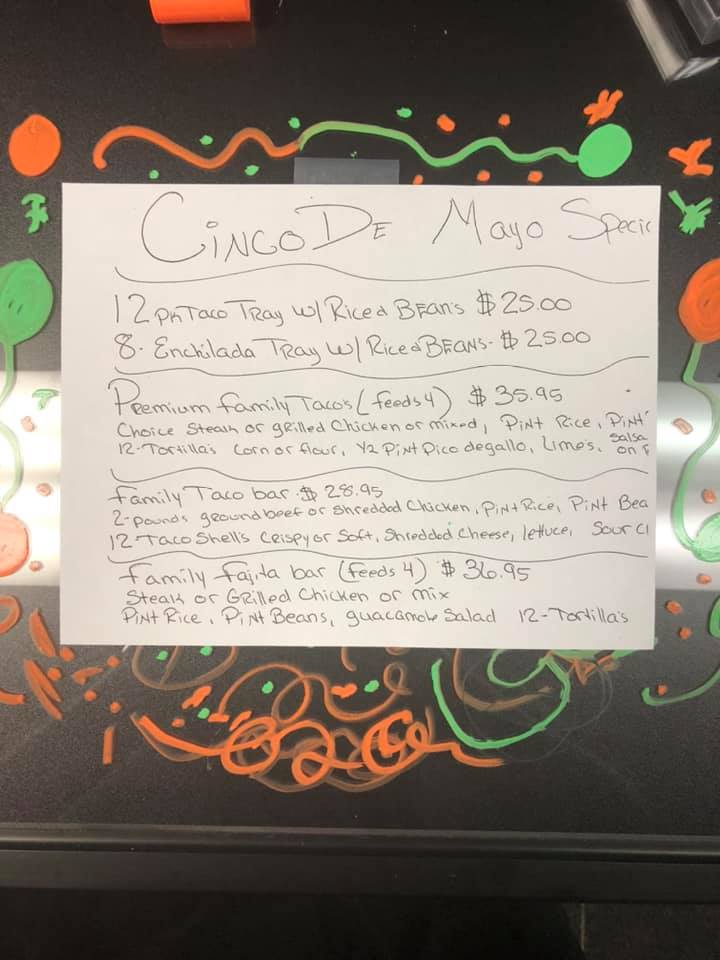 Cinco De Mayo Speci
12 PK Taco Tray w/ Rice & Beans $25.00
8- Enchilada Tray w/ Rice & Beans- $25.00
Premium Family Taco's (feeds 4) $35.95
Choice Steak or grilled Chicken or mixed, Pint Rice, Pint
12-Tortilla's Corn or flour, 1/2 Pint Pico degallo, Lime's, Salsa
on
Family Taco bar - $28.95
2-pounds ground beef or Shredded Chicken, Pint Rice, Pint Bea
12-Taco Shell's Crispy or Soft, Shredded Cheese, lettuce, Sour Cr
Family Fajita bar (feeds 4) $36.95
Steak or Grilled Chicken or mix
Pint Rice, Pint Beans, guacamole Salad 12-Tortilla's